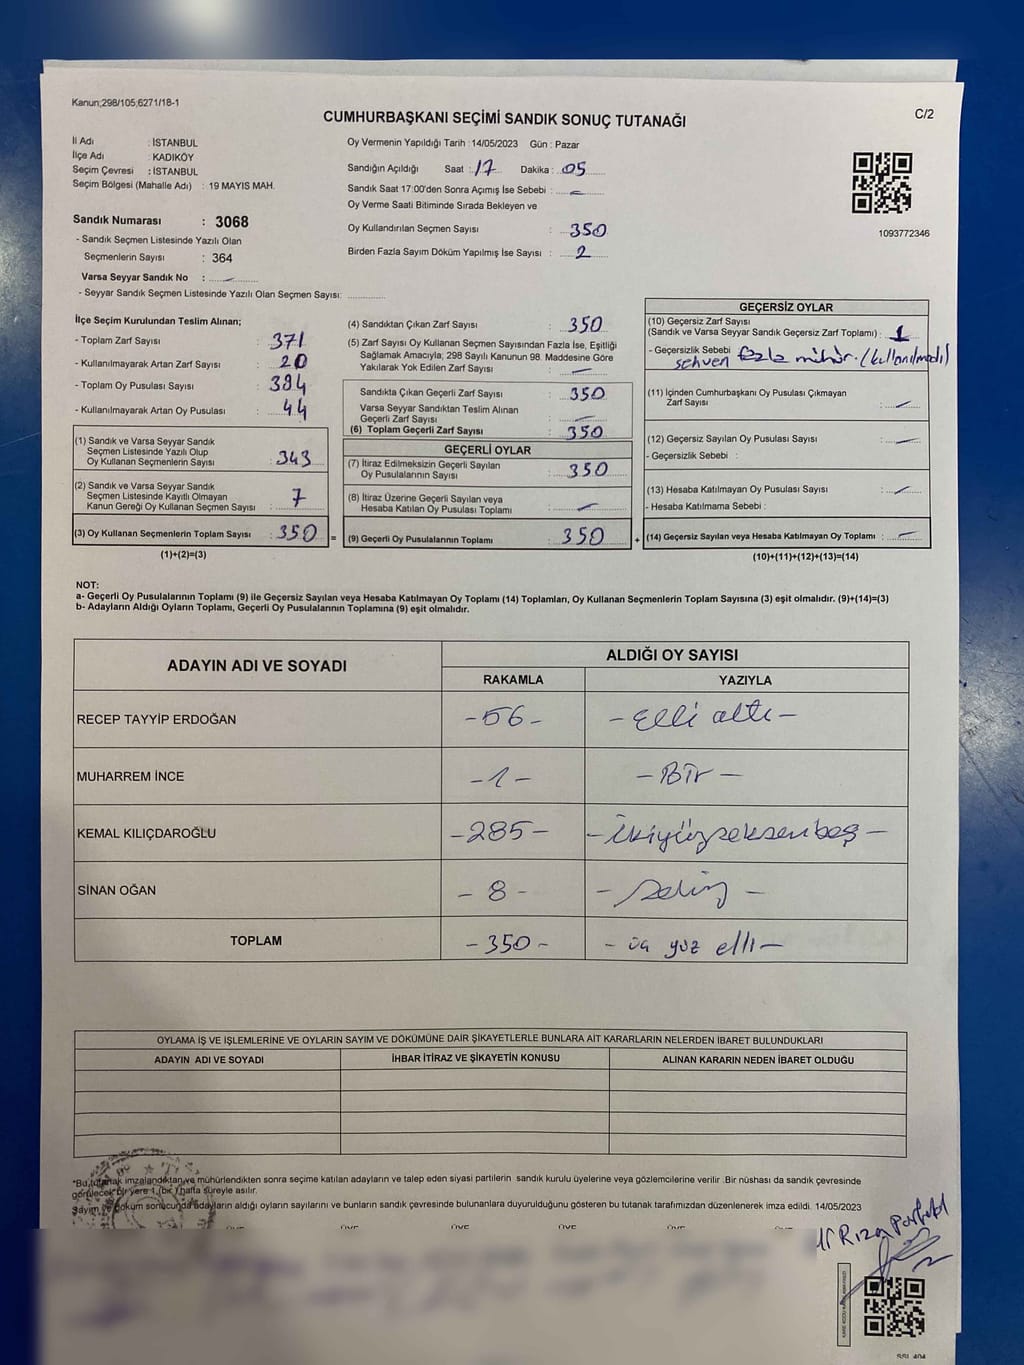 Kanun;298/105;6271/18-1
C/2
CUMHURBAŞKANI SEÇİMİ SANDIK SONUÇ TUTANAĞI
İl Adı : İSTANBUL
İlçe Adı : KADIKÖY
Seçim Çevresi : İSTANBUL
Seçim Bölgesi (Mahalle Adı) : 19 MAYIS MAH.
Sandık Numarası : 3068
- Sandık Seçmen Listesinde Yazılı Olan
Seçmenlerin Sayısı : 364
Varsa Seyyar Sandık No :
- Seyyar Sandık Seçmen Listesinde Yazılı Olan Seçmen Sayısı:
Oy Vermenin Yapıldığı Tarih : 14/05/2023 Gün : Pazar
Sandığın Açıldığı Saat : 17 Dakika : 05
Sandık Saat 17:00'den Sonra Açımış İse Sebebi :
Oy Verme Saati Bitiminde Sırada Bekleyen ve
Oy Kullandırılan Seçmen Sayısı : 350
Birden Fazla Sayım Döküm Yapılmış İse Sayısı : 2
1093772346
İlçe Seçim Kurulundan Teslim Alınan;
- Toplam Zarf Sayısı : 371
- Kullanılmayarak Artan Zarf Sayısı : 20
- Toplam Oy Pusulası Sayısı : 394
- Kullanılmayarak Artan Oy Pusulası : 44
(1) Sandık ve Varsa Seyyar Sandık
Seçmen Listesinde Yazılı Olup
Oy Kullanan Seçmenlerin Sayısı : 343
(2) Sandık ve Varsa Seyyar Sandık
Seçmen Listesinde Kayıtlı Olmayan
Kanun Gereği Oy Kullanan Seçmen Sayısı : 7
(3) Oy Kullanan Seçmenlerin Toplam Sayısı : 350 =
(1)+(2)=(3)
(4) Sandıktan Çıkan Zarf Sayısı : 350
(5) Zarf Sayısı Oy Kullanan Seçmen Sayısından Fazla İse, Eşitliği
Sağlamak Amacıyla; 298 Sayılı Kanunun 98. Maddesine Göre
Yakılarak Yok Edilen Zarf Sayısı :
Sandıkta Çıkan Geçerli Zarf Sayısı : 350
Varsa Seyyar Sandıktan Teslim Alınan
Geçerli Zarf Sayısı :
(6) Toplam Geçerli Zarf Sayısı : 350
GEÇERLİ OYLAR
(7) İtiraz Edilmeksizin Geçerli Sayılan
Oy Pusulalarının Sayısı : 350
(8) İtiraz Üzerine Geçerli Sayılan veya
Hesaba Katılan Oy Pusulası Toplamı :
(9) Geçerli Oy Pusulalarının Toplamı : 350 +
GEÇERSİZ OYLAR
(10) Geçersiz Zarf Sayısı
(Sandık ve Varsa Seyyar Sandık Geçersiz Zarf Toplamı) : 1
- Geçersizlik Sebebi : fazla mühür. (kullanılmadı)
sehven
(11) İçinden Cumhurbaşkanı Oy Pusulası Çıkmayan
Zarf Sayısı :
(12) Geçersiz Sayılan Oy Pusulası Sayısı :
- Geçersizlik Sebebi :
(13) Hesaba Katılmayan Oy Pusulası Sayısı :
- Hesaba Katılmama Sebebi :
(14) Geçersiz Sayılan veya Hesaba Katılmayan Oy Toplamı :
(10)+(11)+(12)+(13)=(14)
NOT:
a- Geçerli Oy Pusulalarının Toplamı (9) ile Geçersiz Sayılan veya Hesaba Katılmayan Oy Toplamı (14) Toplamları, Oy Kullanan Seçmenlerin Toplam Sayısına (3) eşit olmalıdır. (9)+(14)=(3)
b- Adayların Aldığı Oyların Toplamı, Geçerli Oy Pusulalarının Toplamına (9) eşit olmalıdır.
ADAYIN ADI VE SOYADI
ALDIĞI OY SAYISI
RAKAMLA YAZIYLA
RECEP TAYYİP ERDOĞAN -56- -Elli altı-
MUHARREM İNCE -1- -Bir-
KEMAL KILIÇDAROĞLU -285- -İkiyüzseksenbeş-
SİNAN OĞAN -8- -Sekiz-
TOPLAM -350- -üç yüz elli-
OYLAMA İŞ VE İŞLEMLERİNE VE OYLARIN SAYIM VE DÖKÜMÜNE DAİR ŞİKAYETLERLE BUNLARA AİT KARARLARIN NELERDEN İBARET BULUNDUKLARI
ADAYIN ADI VE SOYADI İHBAR İTİRAZ VE ŞİKAYETİN KONUSU ALINAN KARARIN NEDEN İBARET OLDUĞU
*Bu tutanak imzalandıktan ve mühürlendikten sonra seçime katılan adayların ve talep eden siyasi partilerin sandık kurulu üyelerine veya gözlemcilerine verilir .Bir nüshası da sandık çevresinde
görülecek bir yere 1 (bir) hafta süreyle asılır.
Sayım ve döküm sonucunda adayların aldığı oyların sayılarını ve bunların sandık çevresinde bulunanlara duyurulduğunu gösteren bu tutanak tarafımızdan düzenlenerek imza edildi. 14/05/2023